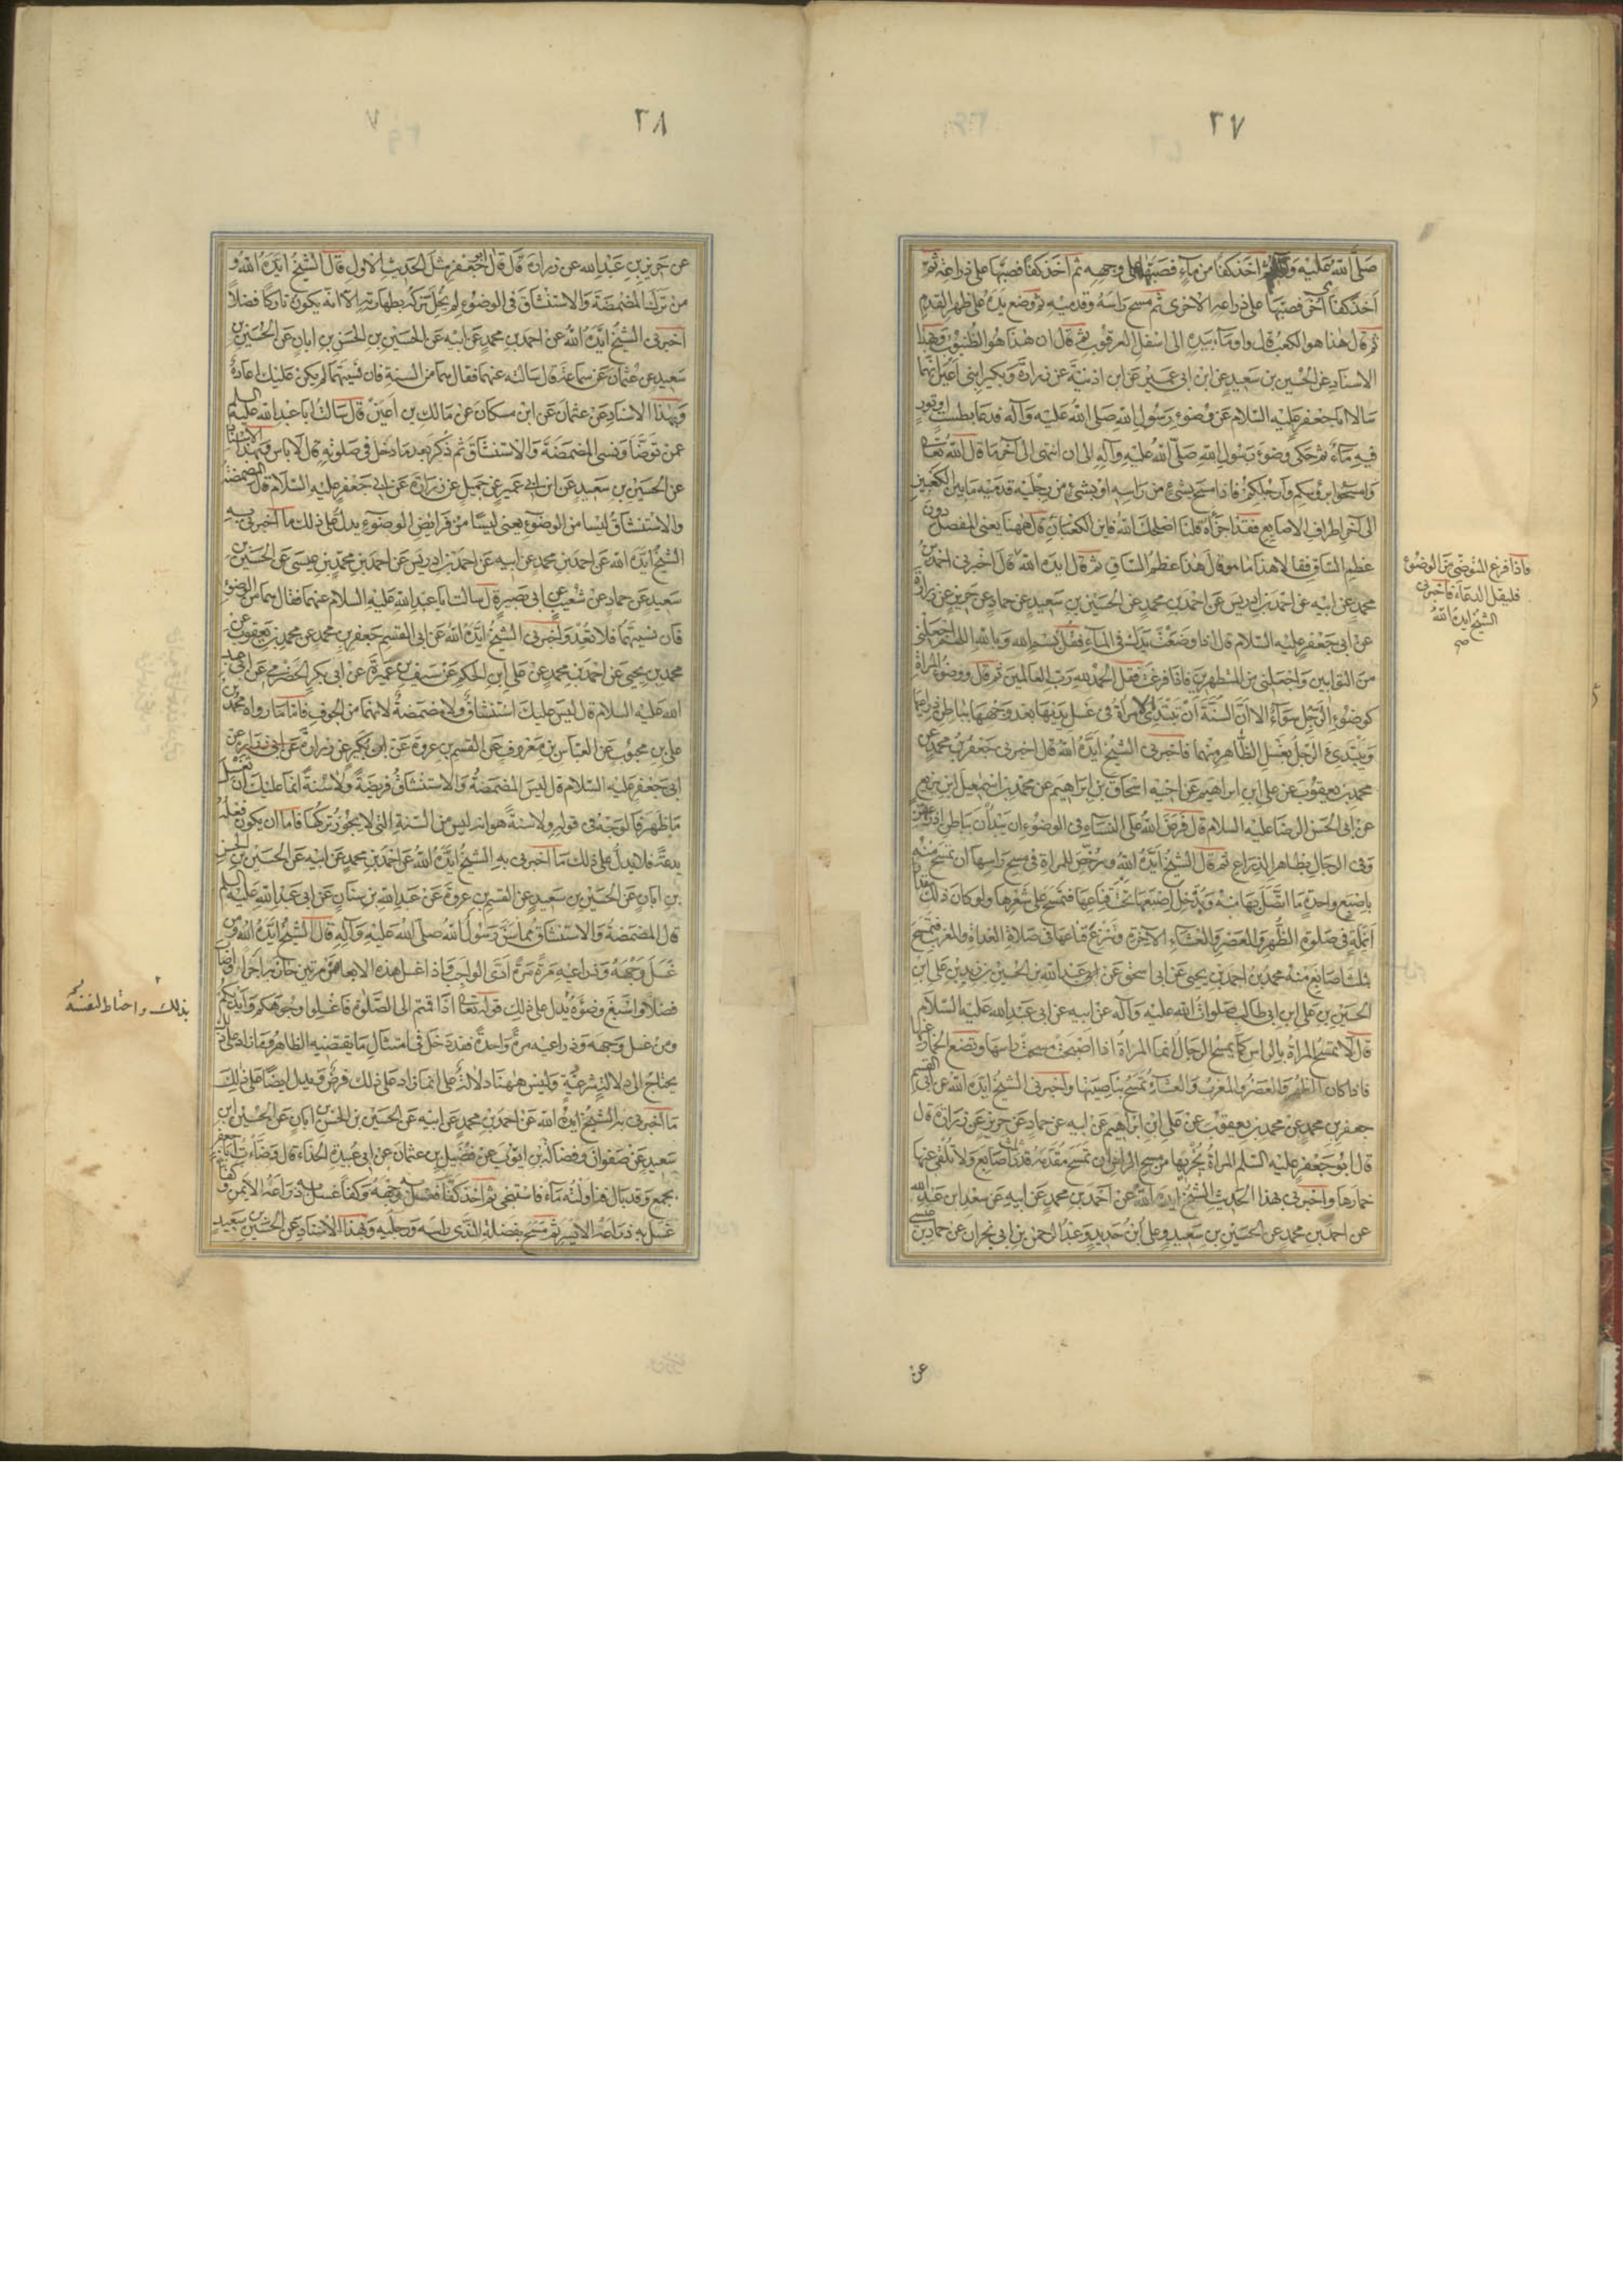 ٢٧
صلى الله عليه وآله ثم اخذ كفا من ماء فصبها على وجهه ثم اخذ كفا فصبها على ذراعه ثم
اخذ كفا آخر فصبها على ذراعه الاخرى ثم مسح راسه وقدميه ثم وضع يده على ظهر القدم
ثم قال هذا هو الكعب قال واوماء بيده الى اسفل العرقوب ثم قال ان هذا هو الظنبوب وبهذا
الاسناد عن الحسين بن سعيد عن ابن ابى عمير عن ابن اذينة عن زرارة وبكير ابنى اعين انهما
سالا ابا جعفر عليه السلام عن وضوء رسول الله صلى الله عليه وآله فدعا بطست او تور
فيه ماء ثم حكى وضوء رسول الله صلى الله عليه وآله الى ان انتهى الى آخر ما قال الله تعالى
وامسحوا برؤسكم وارجلكم فاذا مسح بشئ من راسه او بشئ من رجليه قدميه ما بين الكعبين
الى آخر اطراف الاصابع فقد اجزأه قلنا اصلحك الله فاين الكعبان قال ههنا يعنى المفصل دون
عظم الساق فقالا هذا ما هو قال هذا عظم الساق ثم قال ايده الله قال اخبرنى احمد بن
محمد عن ابيه عن احمد بن ادريس عن احمد بن محمد عن الحسين بن سعيد عن حماد عن حريز عن زرارة
عن ابى جعفر عليه السلام قال اذا وضعت يدك فى الماء فقل بسم الله وبالله اللهم اجعلنى
من التوابين واجعلنى من المتطهرين فاذا فرغت فقل الحمد لله رب العالمين ثم قال ووضوء المراة
كوضوء الرجل سواء الا ان السنة ان تبتدئ المراة فى غسل يديها بعد وجهها بباطن ذراعيها
ويبتدئ الرجل بغسل الظاهر منهما فاخبرنى الشيخ ايده الله قال اخبرنى جعفر بن محمد عن
محمد بن يعقوب عن على بن ابراهيم عن اخيه اسحاق بن ابراهيم عن محمد بن اسمعيل بن بزيع
عن ابى الحسن الرضا عليه السلام قال فرض الله على النساء فى الوضوء ان يبدأن بباطن اذرعهن
وفى الرجال بظاهر الذراع ثم قال الشيخ ايده الله ورخص للمراة فى مسح راسها ان تمسح منه
باصبع واحدة ما اتصل بها منه وتدخل اصبعها تحت قناعها فتمسح على شعرها ولو كان ذلك
انملة فى صلوة الظهر والعصر والعشاء الآخرة وتنزع قناعها فى صلاة الغداة والمغرب فتمسح
بثلث اصابع منه محمد بن احمد بن يحيى عن ابى اسحق عن ابى عبد الله بن الحسين بن زيد بن على ابن
الحسين بن على ابن ابى طالب صلوات الله عليه وآله عن ابيه عن ابى عبد الله عليه السلام
قال لا تمسح المراة بالراس كما يمسح الرجال انما المراة اذا اصبحت مسحت راسها وتضع الخمار عنها
فاذا كان الظهر والعصر والمغرب والعشاء تمسح بناصيتها واخبرنى الشيخ ايده الله عن ابى القسم
جعفر بن محمد عن محمد بن يعقوب عن على ابن ابراهيم عن ابيه عن حماد عن حريز عن زرارة قال
قال ابو جعفر عليه السلم المراة يجزيها من مسح الراس ان تمسح مقدمه قدر ثلث اصابع ولا تلقى عنها
خمارها واخبرنى بهذا الحديث الشيخ ايده الله عن احمد بن محمد عن ابيه عن سعد ابن عبد الله
عن احمد بن محمد عن الحسين بن سعيد وعلى ابن حديد وعبد الرحمن بن ابى نجران عن حماد بن عيسى
فاذا فرغ المتوضى من الوضوء
فليقل الدعاء فاخبرنى
الشيخ ايده الله
صح
عن
٢٨
عن حريز بن عبد الله عن زرارة قال قال ابو جعفر مثل الحديث الاول قال الشيخ ايده الله و
من ترك المضمضة والاستنشاق فى الوضوء لم يخل تركه بطهارته الا انه يكون تاركا فضلا
اخبرنى الشيخ ايده الله عن احمد بن محمد عن ابيه عن الحسين بن الحسن بن ابان عن الحسين بن
سعيد عن عثمان عن سماعة قال سالته عنهما فقال هما من السنة فان نسيتهما لم يكن عليك اعادة
وبهذا الاسناد عن عثمان عن ابن مسكان عن مالك بن اعين قال سالت ابا عبد الله عليه السلم
عمن توضأ ونسى المضمضة والاستنشاق ثم ذكر بعد ما دخل فى صلوته قال لا باس وبهذا الاسناد
عن الحسين بن سعيد عن ابن ابى عمير عن جميل عن زرارة عن ابى جعفر عليه السلام قال المضمضة
والاستنشاق ليسا من الوضوء يعنى ليسا من فرايض الوضوء يدل على ذلك ما اخبرنى به
الشيخ ايده الله عن احمد بن محمد عن ابيه عن احمد بن ادريس عن احمد بن محمد بن عيسى عن الحسين بن
سعيد عن حماد عن شعيب عن ابى بصير قال سالت ابا عبد الله عليه السلام عنهما فقال هما من الوضوء
فان نسيتهما فلا تعد واخبرنى الشيخ ايده الله عن ابى القسم جعفر بن محمد عن محمد بن يعقوب عن
محمد بن يحيى عن احمد بن محمد عن على ابن الحكم عن سيف بن عميرة عن ابى بكر الحضرمى عن ابى عبد
الله عليه السلام قال ليس عليك استنشاق ولا مضمضة لانهما من الجوف فاما ما رواه محمد بن
على بن محبوب عن العباس بن معروف عن القسم بن عروة عن ابن بكير عن زرارة عن
ابى جعفر عليه السلام قال ليس المضمضة والاستنشاق فريضة ولا سنة انما عليك ان تغسل
ما ظهر فالوجه فى قوله ولا سنة هو انه ليس من السنة التى لا يجوز تركها فاما ان يكون فعله
بدعة فلا يدل على ذلك ما اخبرنى به الشيخ ايده الله عن احمد بن محمد عن ابيه عن الحسين بن الحسن
بن ابان عن الحسين بن سعيد عن القسم بن عروة عن عبد الله بن سنان عن ابى عبد الله عليه السلم
قال المضمضة والاستنشاق مما سن رسول الله صلى الله عليه وآله قال الشيخ ايده الله ومن
غسل وجهه وذراعيه مرة مرة ادى الواجب فاذا غسل هذه الابعاض مرتين حاز به اجرا واصاب
فضلا واسبغ وضوءه يدل على ذلك قوله تعالى اذا قمتم الى الصلوة فاغسلوا وجوهكم وايديكم
ومن غسل وجهه وذراعيه مرة واحدة فقد دخل فى امتثال ما يقتضيه الظاهر وما زاد على ذلك
يحتاج الى دلالة شرعية وليس ههنا دلالة على ان ما زاد على ذلك فرض ويدل ايضا على ذلك
ما اخبرنى به الشيخ ايده الله عن احمد بن محمد عن ابيه عن الحسين بن الحسن بن ابان عن الحسين ابن
سعيد عن صفوان وفضالة بن ايوب عن فضيل بن عثمان عن ابى عبيدة الحذاء قال وضأت ابا جعفر
بجمع وقد بال فناولته ماء فاستنجى ثم اخذ كفا فغسل به وجهه وكفا غسل به ذراعه الايمن وكفا
غسل به ذراعه الايسر ثم مسح بفضلة الندى راسه ورجليه وبهذا الاسناد عن الحسين بن سعيد
بذلك واحتاط لنفسه